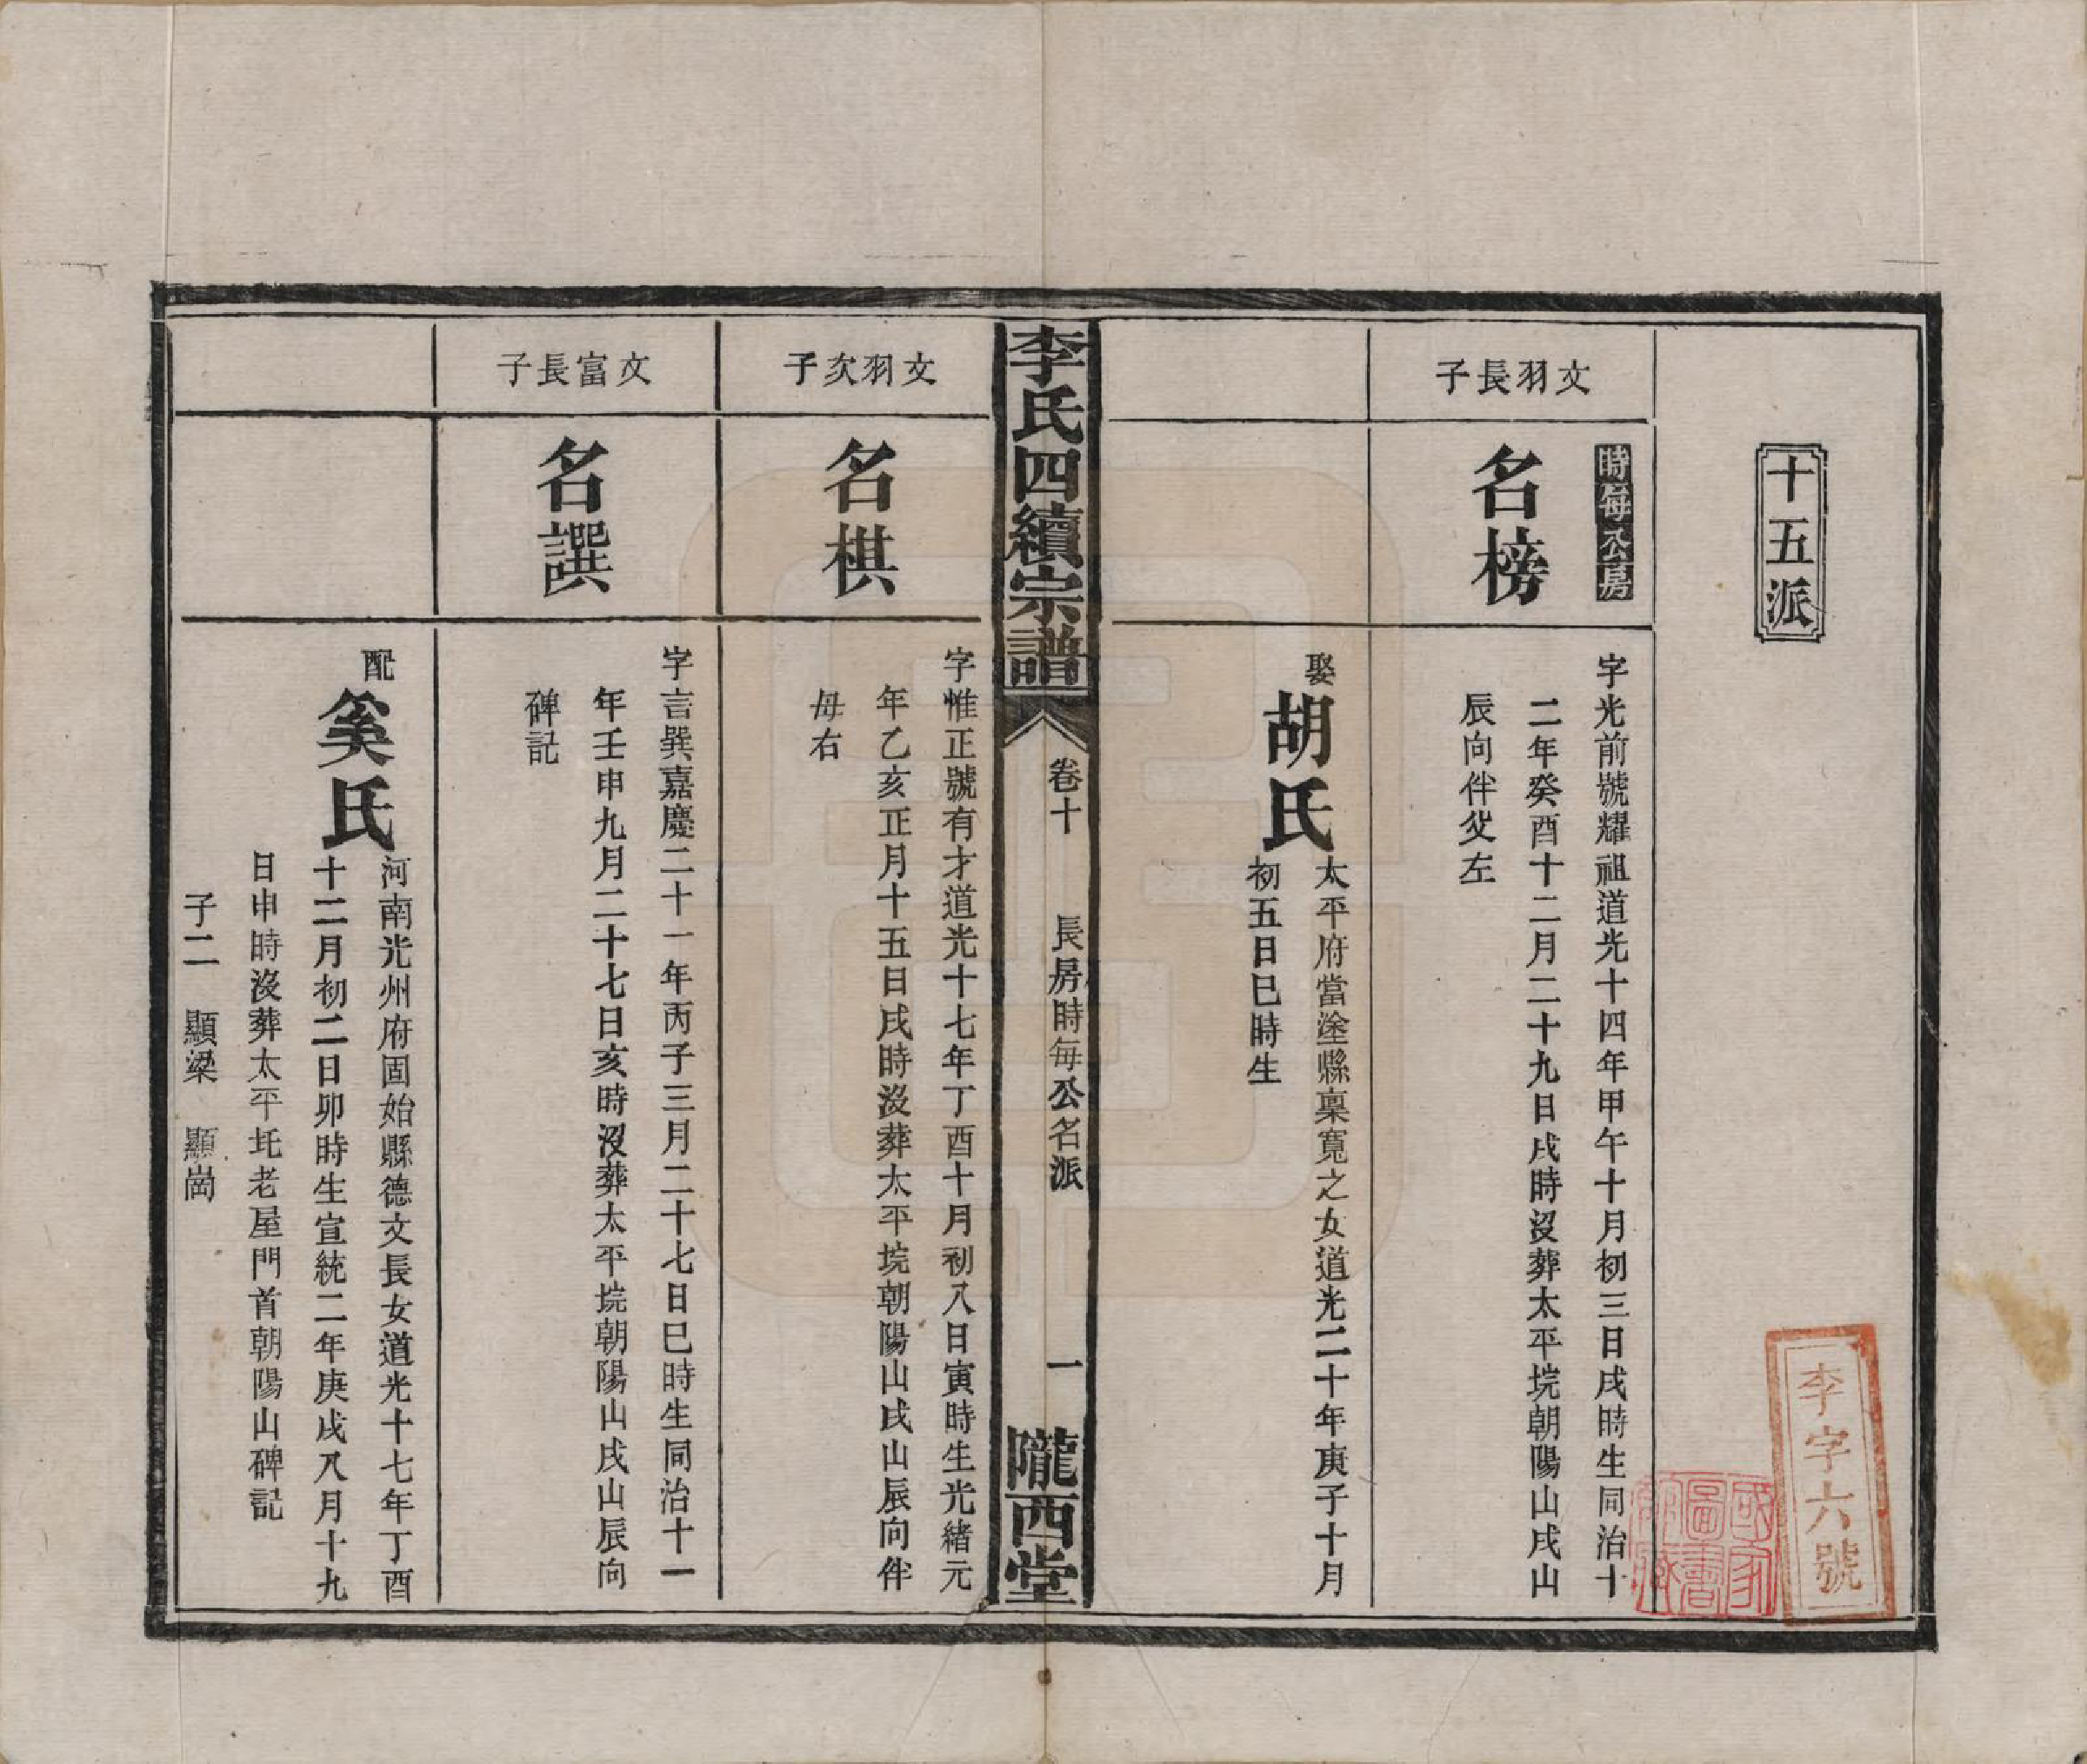 十五派
文羽長子
時每公房
名榜
字光前號耀祖道光十四年甲午十月初三日戌時生同治十
二年癸酉十二月二十九日戌時沒葬太平垸朝陽山戌山
辰向伴父左
娶
胡氏
太平府當塗縣稟寬之女道光二十年庚子十月
初五日巳時生
李氏四續宗譜
卷十
長房時每公名派
一
隴西堂
文羽次子
名棋
字惟正號有才道光十七年丁酉十月初八日寅時生光緒元
年乙亥正月十五日戌時沒葬太平垸朝陽山戌山辰向伴
母右
文富長子
名譔
字言巽嘉慶二十一年丙子三月二十七日巳時生同治十一
年壬申九月二十七日亥時沒葬太平垸朝陽山戌山辰向
碑記
配
奚氏
河南光州府固始縣德文長女道光十七年丁酉
十二月初二日卯時生宣統二年庚戌八月十九
日申時沒葬太平圫老屋門首朝陽山碑記
子二 顯梁 顯崗
李字六號
國家
圖書